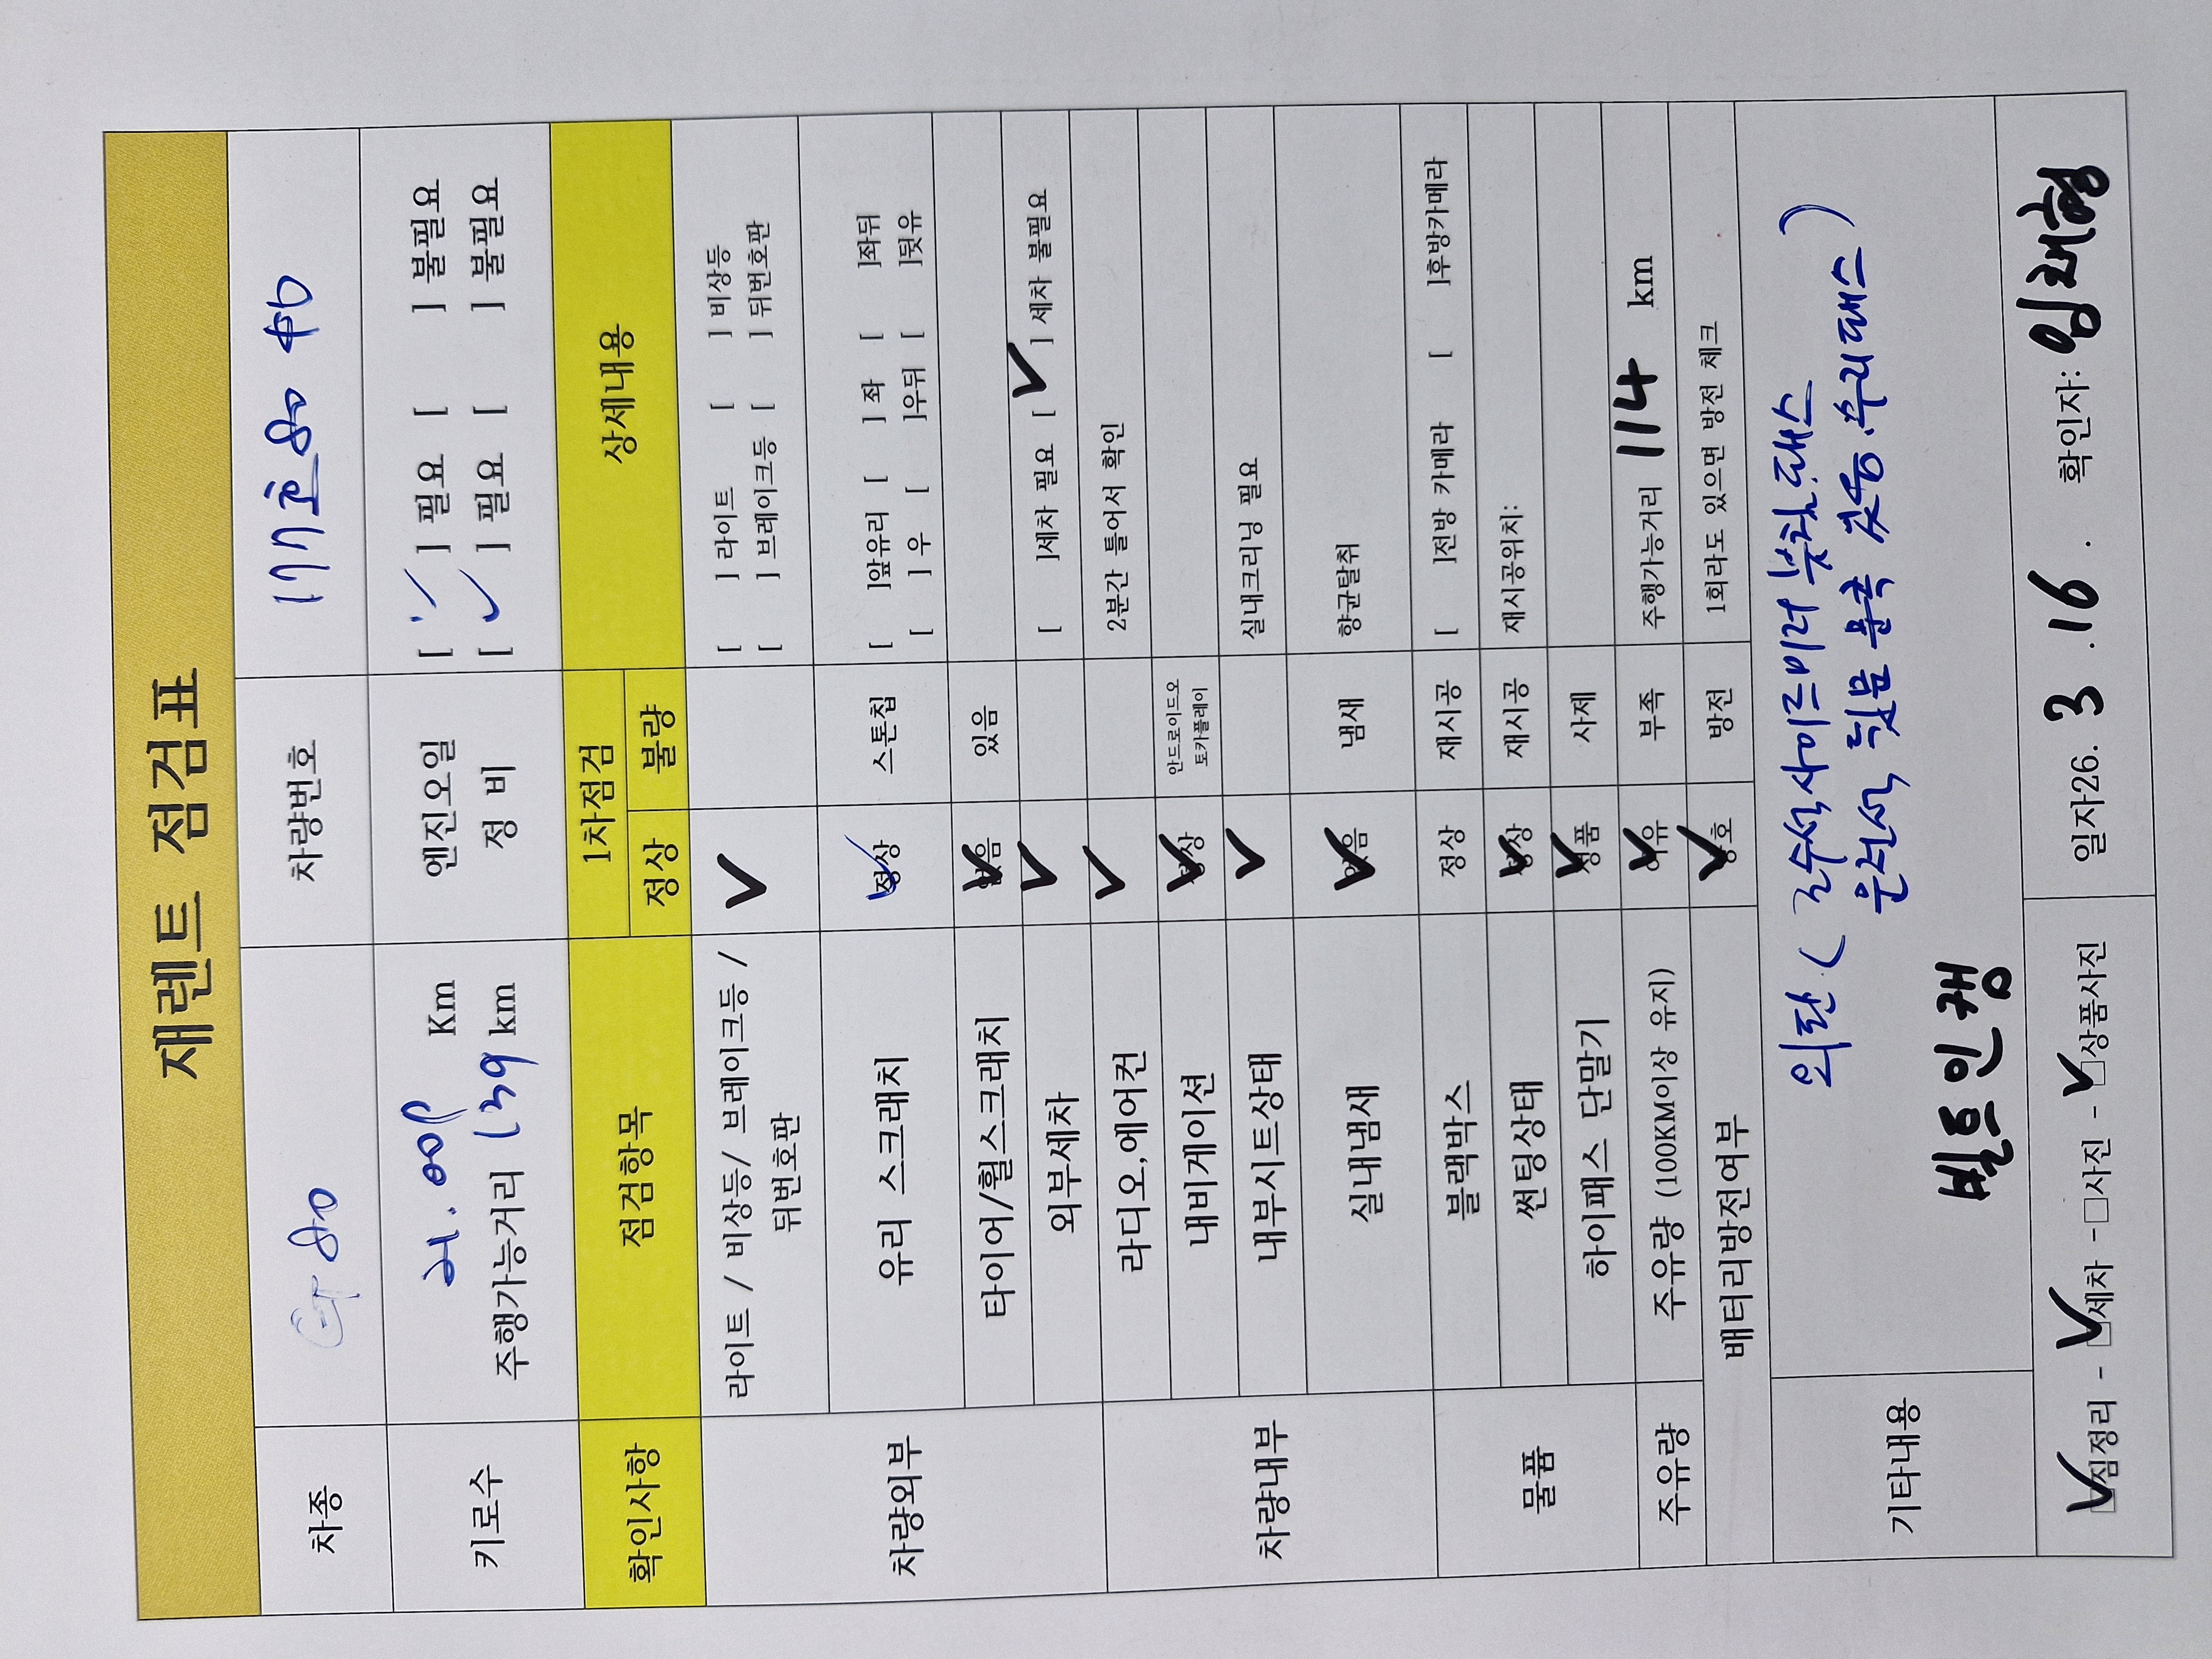 재렌트 점검표
차종 G80 차량번호 177호80
키로수 Km 엔진오일 [ ✓ ] 필요 [ ] 불필요
주행가능거리 139 km 정 비 [ ✓ ] 필요 [ ] 불필요
확인사항 점검항목 1차점검 상세내용
정상 불량
차량외부 라이트 / 비상등/ 브레이크등 / 뒤번호판 ✓ [ ] 라이트 [ ] 비상등
[ ] 브레이크등 [ ] 뒤번호판
유리 스크래치 정상 ✓ 스톤칩 [ ]앞유리 [ ] 좌 [ ]좌뒤
[ ] 우 [ ]우뒤 [ ]뒷유
타이어/휠스크래치 없음 ✓ 있음
외부세차 ✓ [ ]세차 필요 [ ✓ ] 세차 불필요
차량내부 라디오,에어컨 ✓ 2분간 틀어서 확인
내비게이션 정상 ✓ 안드로이드오토카플레이
내부시트상태 ✓ 실내크리닝 필요
실내냄새 없음 ✓ 냄새 향균탈취
물품 블랙박스 정상 재시공 [ ]전방 카메라 [ ]후방카메라
썬팅상태 정상 ✓ 재시공 재시공위치:
하이패스 단말기 정품 ✓ 사제
주유량 주유량 (100KM이상 유지) 여유 ✓ 부족 주행가능거리 114 km
배터리방전여부 양호 ✓ 방전 1회라도 있으면 방전 체크
기타내용 외판 ( 조수석사이드미러 부천.패스
운전석 뒷문 문콕 수리패스 )
빌트인캠
✓짐정리 - ✓세차 - □사진 - ✓상품사진 일자26. 3 .16 . 확인자: 임재형